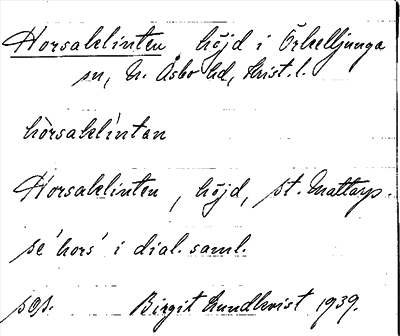 Horsaklinten, höjd i Örkelljunga
sn, N. Åsbo hd, Krist. l.
hòrsaklíntan
Horsaklinten, höjd, st. Mattarp.
se 'hors' i dial. saml.
sgs. Birgit Lundkvist 1939.